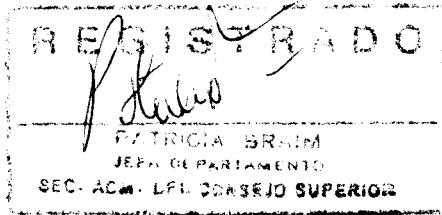 REGISTRADO
PATRICIA BRAIM
JEFA DEPARTAMENTO
SEC. ADM. DEL CONSEJO SUPERIOR